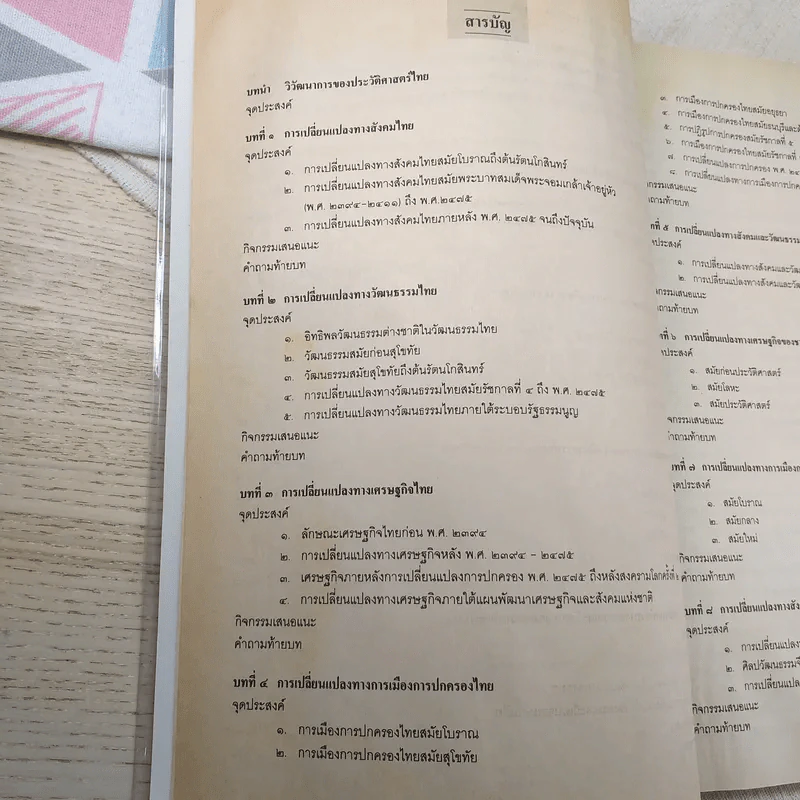 สารบัญ
บทนำ วิวัฒนาการของประวัติศาสตร์ไทย
จุดประสงค์
บทที่ ๑ การเปลี่ยนแปลงทางสังคมไทย
จุดประสงค์
๑. การเปลี่ยนแปลงทางสังคมไทยสมัยโบราณถึงต้นรัตนโกสินทร์
๒. การเปลี่ยนแปลงทางสังคมไทยสมัยพระบาทสมเด็จพระจอมเกล้าเจ้าอยู่หัว
(พ.ศ. ๒๓๙๔-๒๔๑๑) ถึง พ.ศ.๒๔๗๕
๓. การเปลี่ยนแปลงทางสังคมไทยภายหลัง พ.ศ. ๒๔๗๕ จนถึงปัจจุบัน
กิจกรรมเสนอแนะ
คำถามท้ายบท
บทที่ ๒ การเปลี่ยนแปลงทางวัฒนธรรมไทย
จุดประสงค์
๑. อิทธิพลวัฒนธรรมต่างชาติในวัฒนธรรมไทย
๒. วัฒนธรรมสมัยก่อนสุโขทัย
๓. วัฒนธรรมสมัยสุโขทัยถึงต้นรัตนโกสินทร์
๔. การเปลี่ยนแปลงทางวัฒนธรรมไทยสมัยรัชกาลที่ ๔ ถึง พ.ศ. ๒๔๗๕
๕. การเปลี่ยนแปลงทางวัฒนธรรมไทยภายใต้ระบอบรัฐธรรมนูญ
กิจกรรมเสนอแนะ
คำถามท้ายบท
บทที่ ๓ การเปลี่ยนแปลงทางเศรษฐกิจไทย
จุดประสงค์
๑. ลักษณะเศรษฐกิจไทยก่อน พ.ศ. ๒๓๙๔
๒. การเปลี่ยนแปลงทางเศรษฐกิจหลัง พ.ศ. ๒๓๙๔ - ๒๔๗๕
๓. เศรษฐกิจภายหลังการเปลี่ยนแปลงการปกครอง พ.ศ. ๒๔๗๕ ถึงหลังสงครามโลกครั้งที่
๔. การเปลี่ยนแปลงทางเศรษฐกิจภายใต้แผนพัฒนาเศรษฐกิจและสังคมแห่งชาติ
กิจกรรมเสนอแนะ
คำถามท้ายบท
บทที่ ๔ การเปลี่ยนแปลงทางการเมืองการปกครองไทย
จุดประสงค์
๑. การเมืองการปกครองไทยสมัยโบราณ
๒. การเมืองการปกครองไทยสมัยสุโขทัย
๓. การเมืองการปกครองไทยสมัยอยุธยา
๔. การเมืองการปกครองไทยสมัยธนบุรีและ
๕. การปฏิรูปการปกครองสมัยรัชกาลที่ ๕
๖. การเมืองการปกครองไทยสมัยรัชกาลที่
๗. การเปลี่ยนแปลงการปกครอง พ.ศ. ๒๔
๘. การเปลี่ยนแปลงทางการเมืองการปก
กิจกรรมเสนอแนะ
คำถามท้ายบท
ที่ ๕ การเปลี่ยนแปลงทางสังคมและวัฒนธรรม
ประสงค์
๑. การเปลี่ยนแปลงทางสังคมและวัฒ
๒. การเปลี่ยนแปลงทางสังคมและวัฒ
กรรมเสนอแนะ
ถามท้ายบท
ที่ ๖ การเปลี่ยนแปลงทางเศรษฐกิจของ
ประสงค์
๑. สมัยก่อนประวัติศาสตร์
๒. สมัยโลหะ
๓. สมัยประวัติศาสตร์
กิจกรรมเสนอแนะ
คำถามท้ายบท
บทที่ ๗ การเปลี่ยนแปลงทางการเมือง
จุดประสงค์
๑. สมัยโบราณ
๒. สมัยกลาง
๓. สมัยใหม่
กิจกรรมเสนอแนะ
คำถามท้ายบท
บทที่ ๘ การเปลี่ยนแปลงทางสัง
จุดประสงค์
๑. การเปลี่ยนแปลงทา
๒. ศิลปวัฒนธรรม
๓. การเปลี่ยนแปล
กิจกรรมเสนอแนะ
คำถามท้ายบท